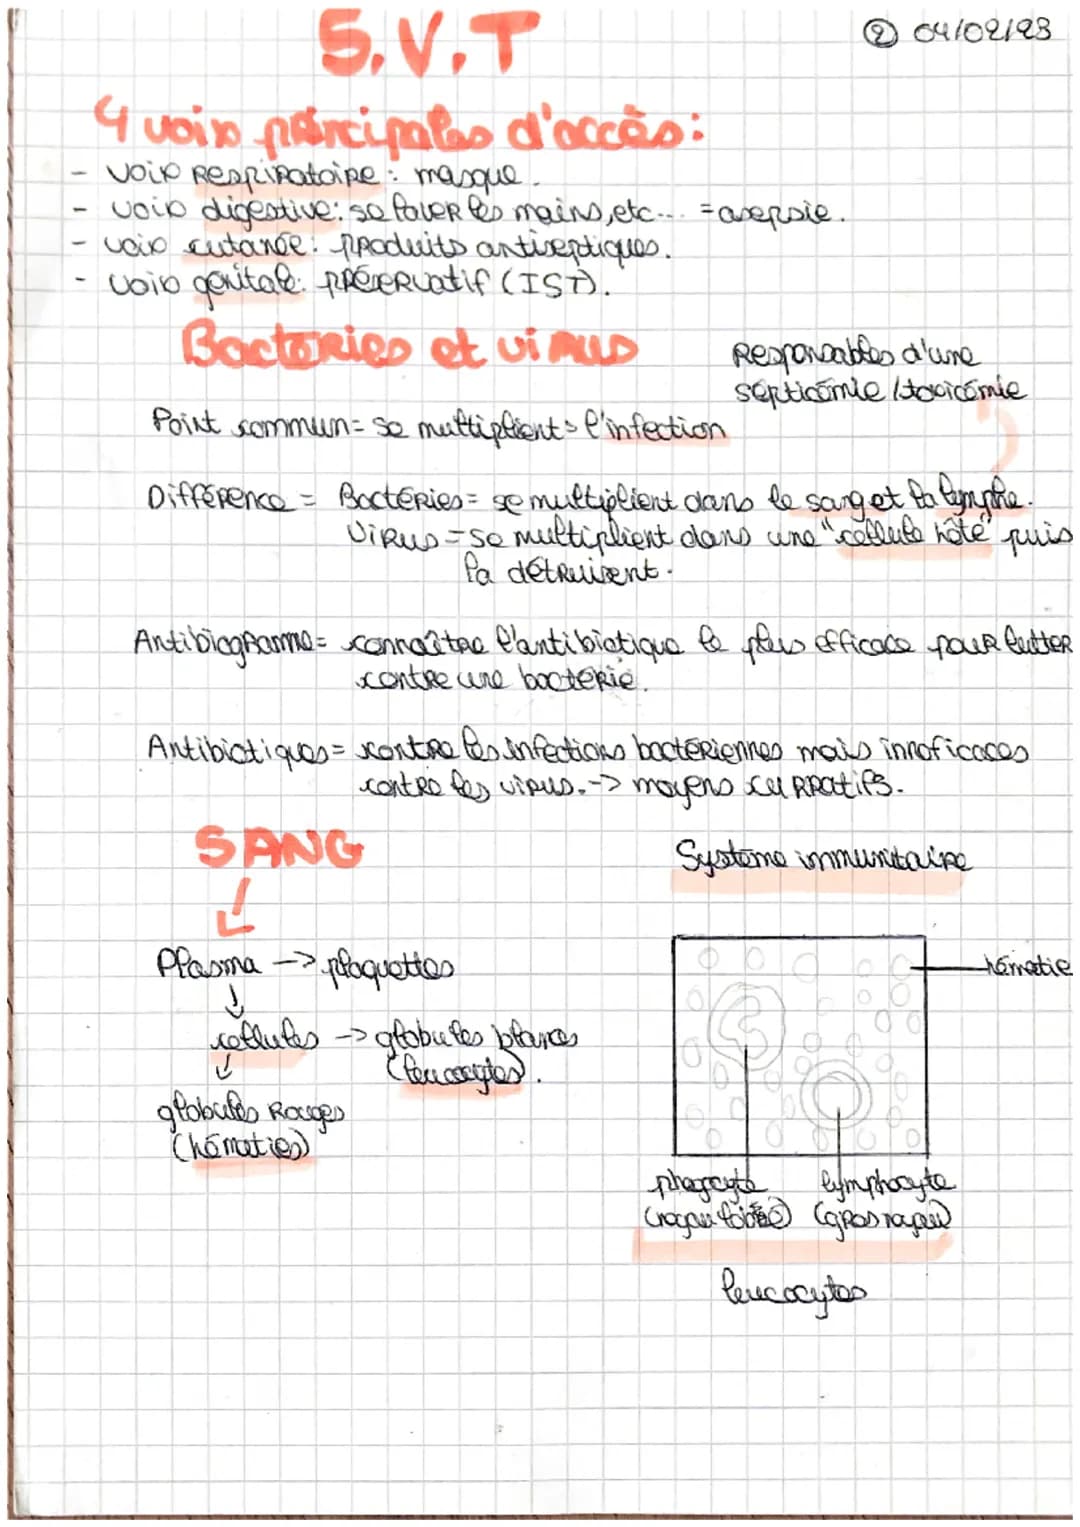 S.V.T
② 04/02/23
4 voies principales d'accès:
- voie respiratoire: masque.
- voie digestive: se laver les mains, etc... = asepsie.
- voie cutanée: produits antiseptiques.
- voie génitale: préservatif (IST).
Bactéries et virus
Responsables d'une
septicémie / toxicémie
Point commun = se multiplient > l'infection
Différence = Bactéries = se multiplient dans le sang et la lymphe.
Virus = se multiplient dans une "cellule hôte" puis
la détruisent.
Antibiogramme = connaître l'antibiotique le plus efficace pour lutter
contre une bactérie.
Antibiotiques = contre les infections bactériennes mais innéficaces
contre les virus. -> moyens curratifs.
SANG
Système immunitaire
Plasma -> plaquettes
hématie
cellules -> globules blancs
(leucocytes).
globules rouges
(hématies)
phagocyte lymphocyte
(noyau lobé) (gros noyau)
leucocytes